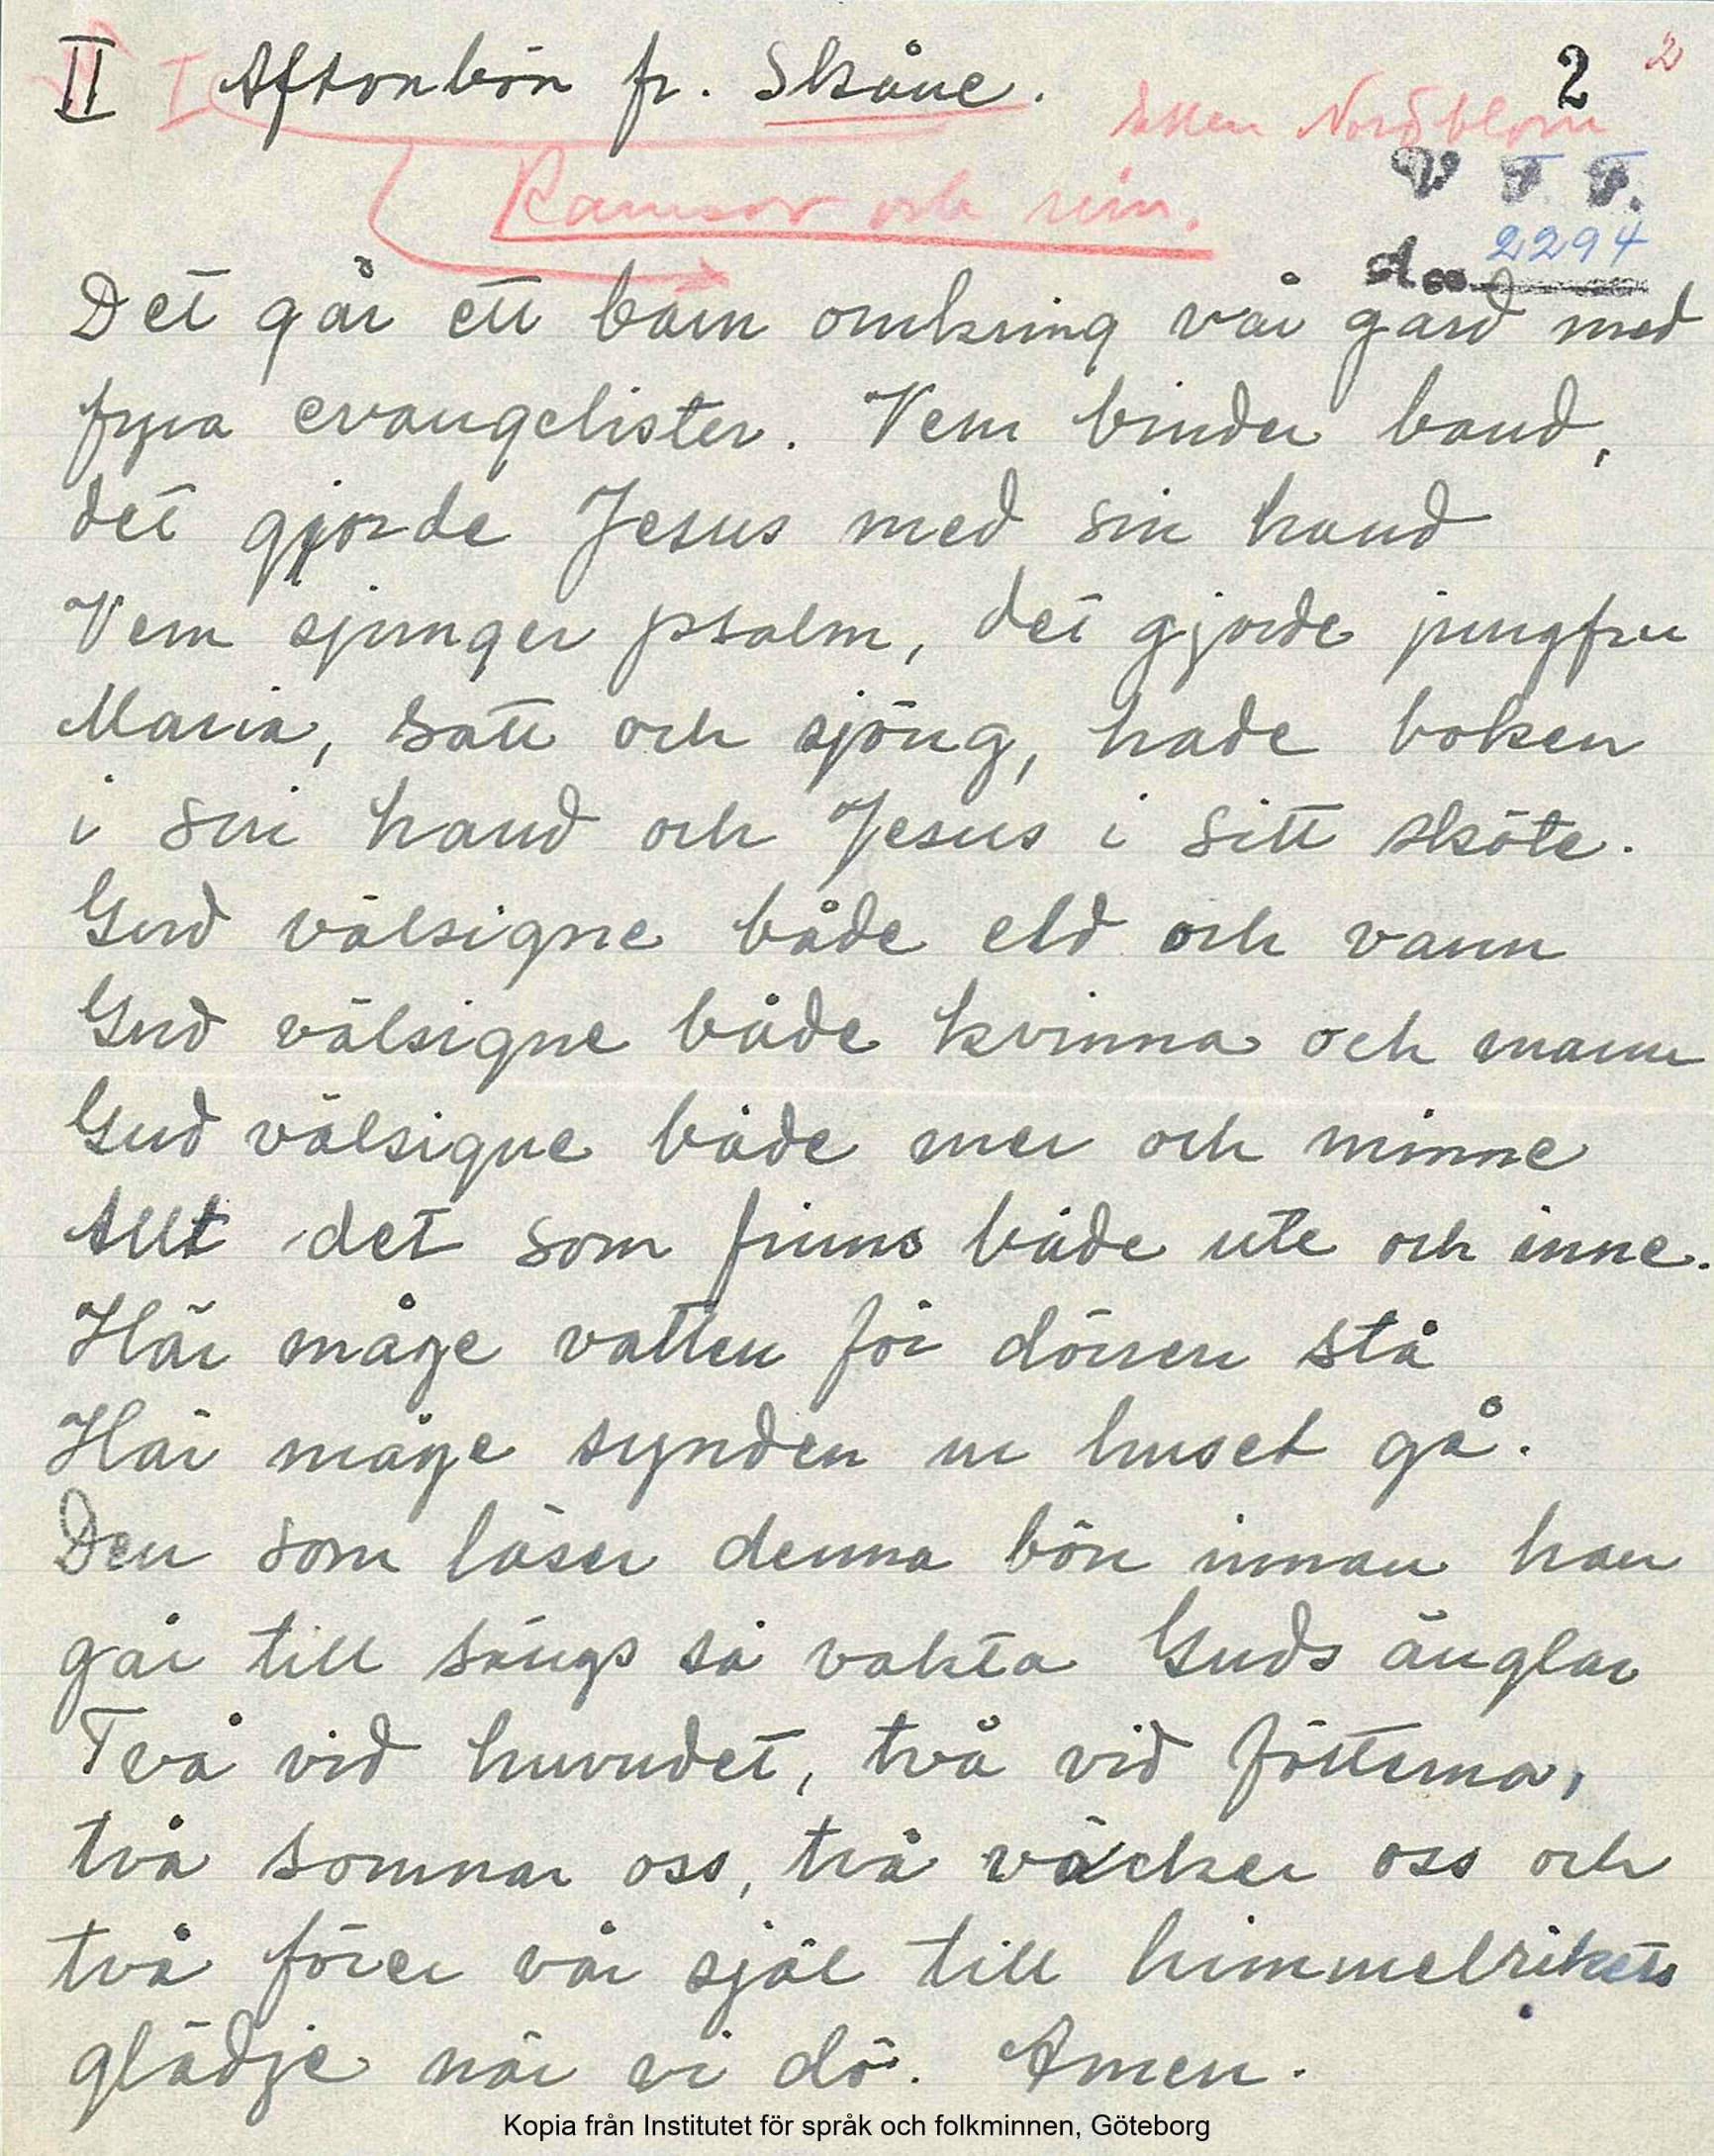 II I Aftonbön fr. Skåne. 2 2
Nordblom
Ramsor och rim.
V F F.
2294
Det går ett barn omkring vår gård med
fyra evangelister. Vem binder band,
det gjorde Jesus med sin hand
Vem sjunger psalm, det gjorde jungfru
Maria, satt och sjöng, hade boken
i sin hand och Jesus i sitt sköte.
Gud välsigne både eld och vann
Gud välsigne både kvinna och mann
Gud välsigne både mer och minne
Allt det som finns både ute och inne.
Här måge vatten för dörren stå
Här måge synden ur huset gå.
Den som läser denna bön innan han
går till sängs så vakta Guds änglar
Två vid huvudet, två vid fötterna,
två somnar oss, två väcker oss och
två förer vår själ till himmelrikets
glädje när vi dö. Amen.
Kopia från Institutet för språk och folkminnen, Göteborg